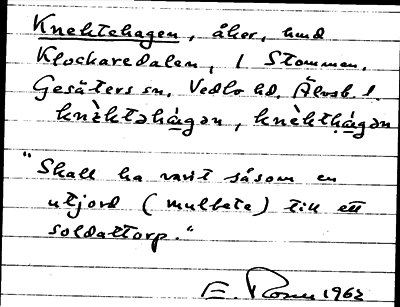 Knektehagen, åker, hmd
Klockaredalen, 1 Stommen,
Gesäters sn. Vedbo hd. Älvsb. l.
knὲktəhɑ̀gən, knèkthɑ̀gən
"Skall ha varit såsom en
utjord (mulbete) till ett
soldattorp."
E. 1962